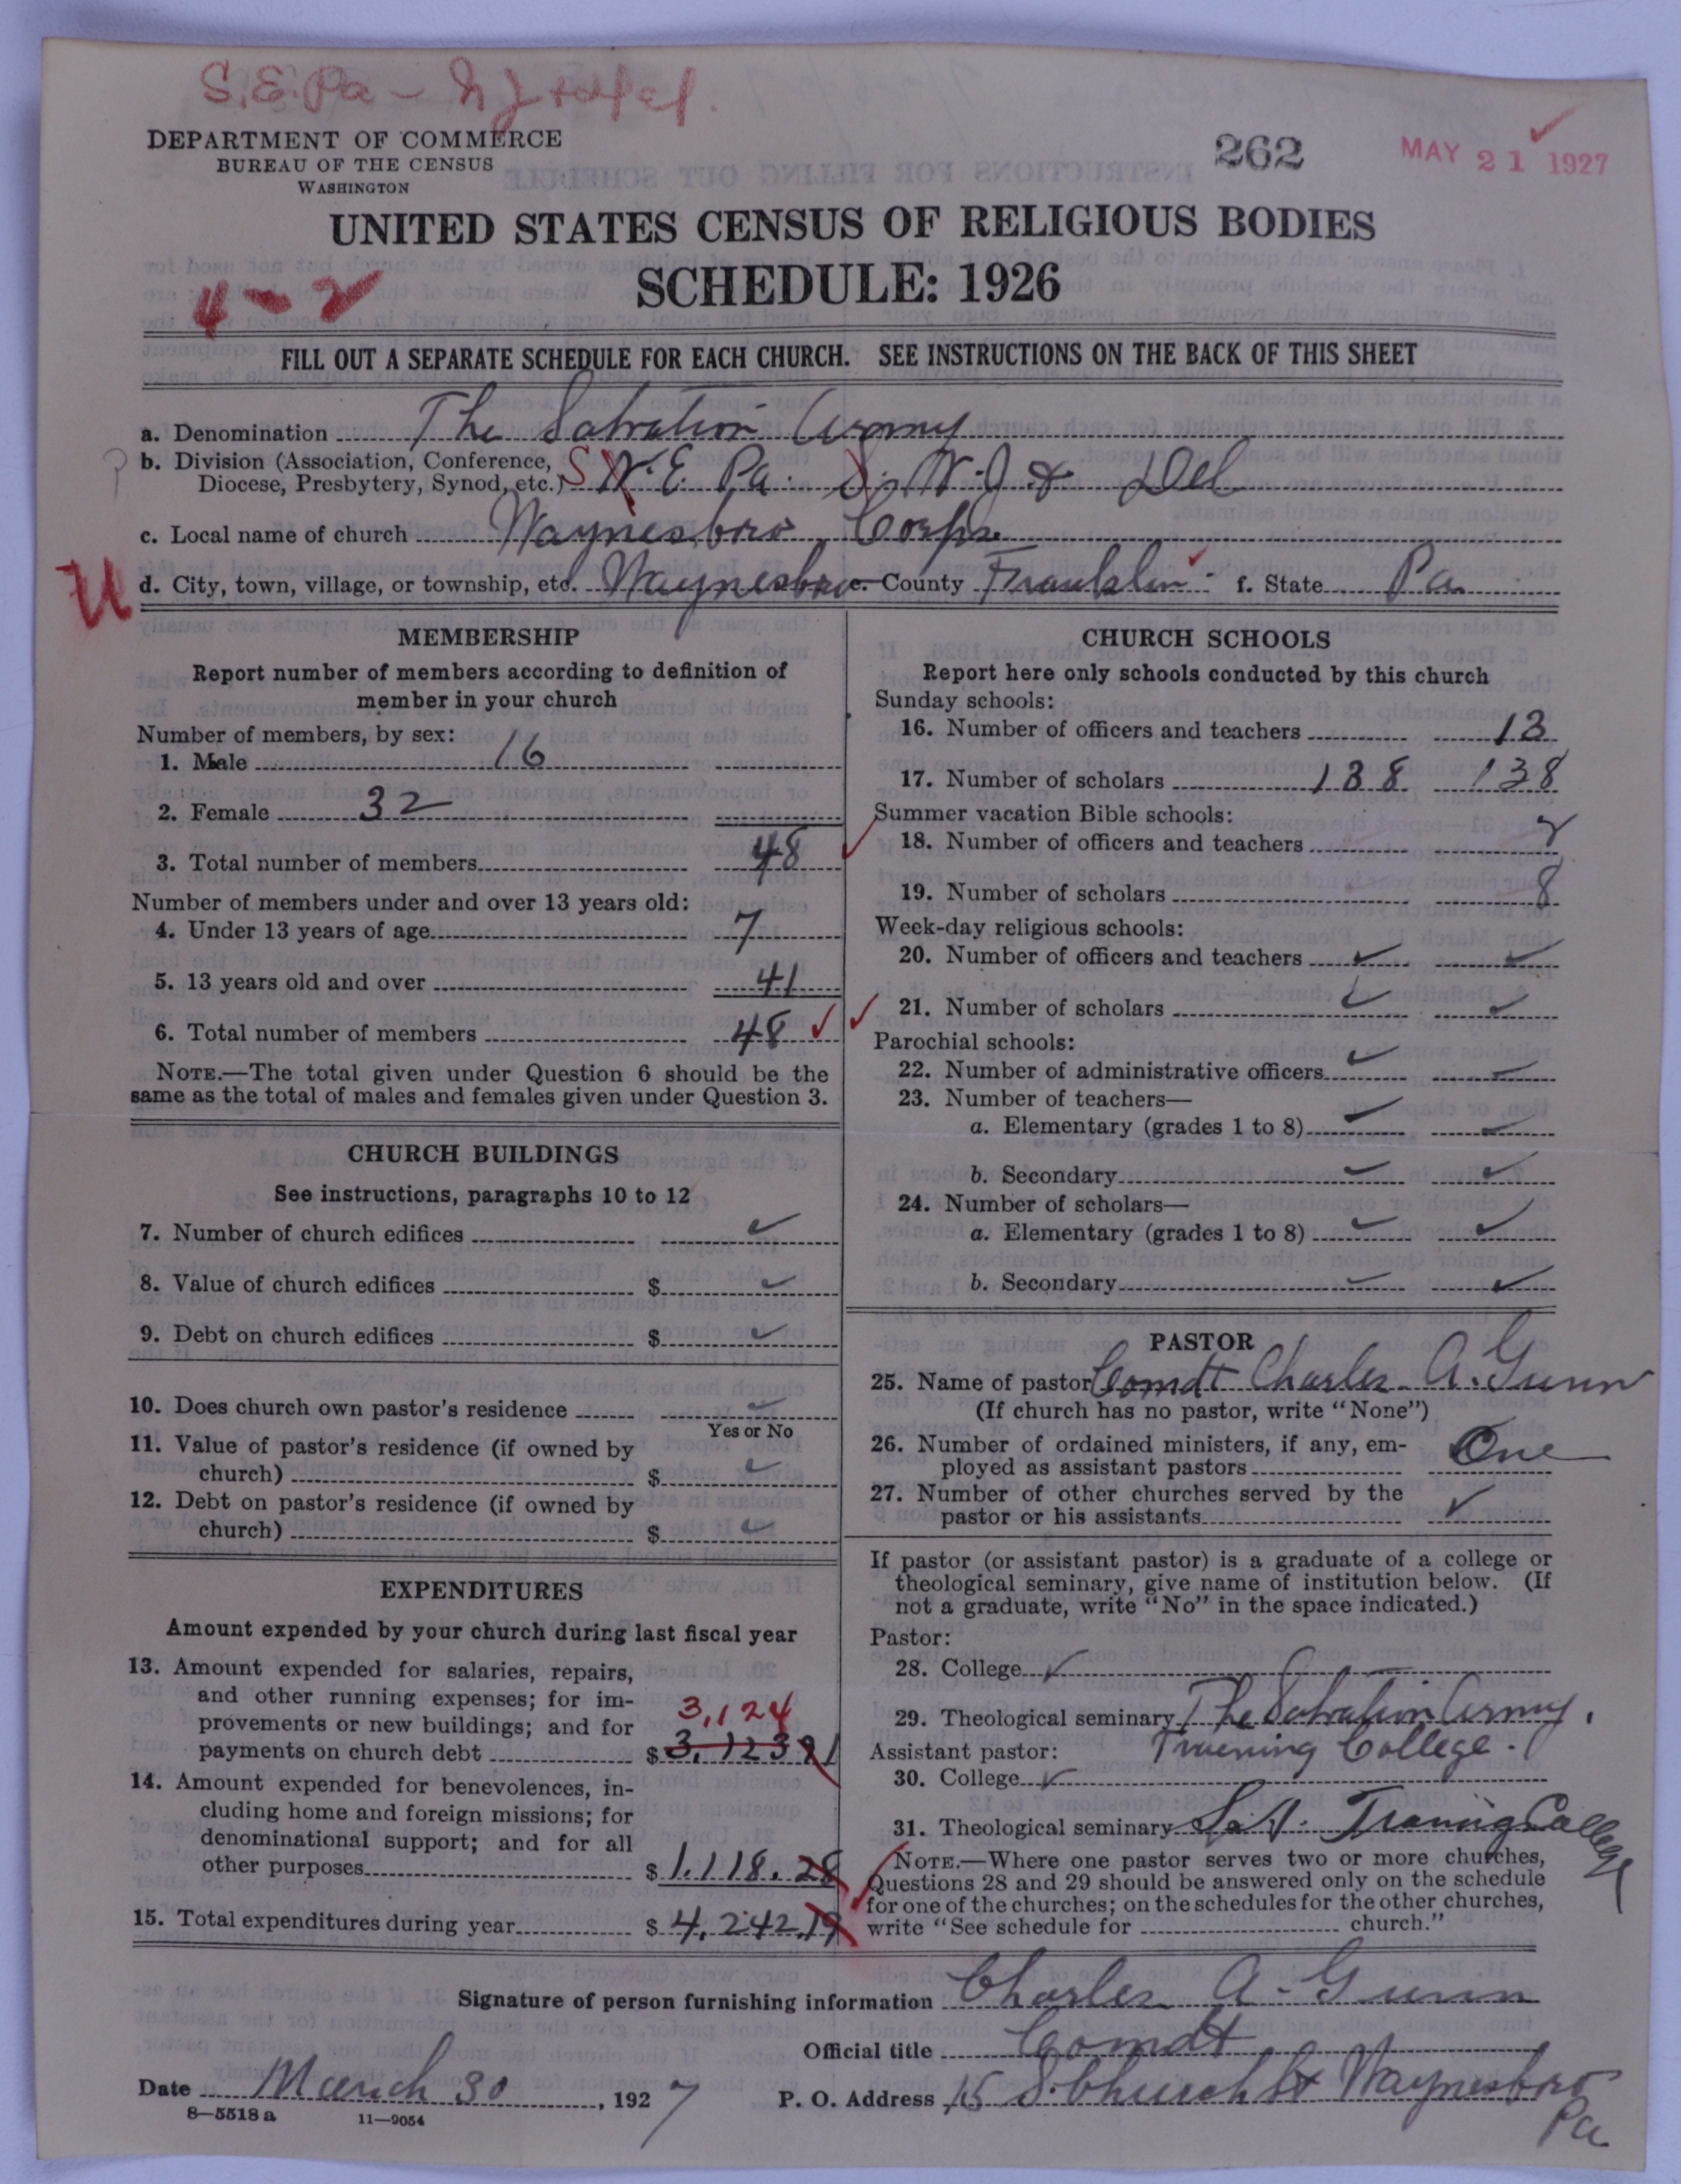 S.E. Pa - N J & Del.
DEPARTMENT OF COMMERCE
BUREAU OF THE CENSUS
WASHINGTON
262
MAY 21 1927
UNITED STATES CENSUS OF RELIGIOUS BODIES
SCHEDULE: 1926
4-2
FILL OUT A SEPARATE SCHEDULE FOR EACH CHURCH. SEE INSTRUCTIONS ON THE BACK OF THIS SHEET
a. Denomination The Salvation Army
b. Division (Association, Conference,
Diocese, Presbytery, Synod, etc.) S N. E. Pa. S. N. J & Del
c. Local name of church Waynesboro Corps.
U d. City, town, village, or township, etc. Waynesboro e. County Franklin f. State Pa.
MEMBERSHIP
Report number of members according to definition of
member in your church
Number of members, by sex:
1. Male 16
2. Female 32
3. Total number of members 48
Number of members under and over 13 years old:
4. Under 13 years of age 7
5. 13 years old and over 41
6. Total number of members 48
NOTE.—The total given under Question 6 should be the
same as the total of males and females given under Question 3.
CHURCH BUILDINGS
See instructions, paragraphs 10 to 12
7. Number of church edifices
8. Value of church edifices $
9. Debt on church edifices $
10. Does church own pastor's residence
Yes or No
11. Value of pastor's residence (if owned by
church) $
12. Debt on pastor's residence (if owned by
church) $
EXPENDITURES
Amount expended by your church during last fiscal year
13. Amount expended for salaries, repairs,
and other running expenses; for im-
provements or new buildings; and for 3,124
payments on church debt $ 3,123 91
14. Amount expended for benevolences, in-
cluding home and foreign missions; for
denominational support; and for all
other purposes $ 1,118.28
15. Total expenditures during year $ 4,242.19
CHURCH SCHOOLS
Report here only schools conducted by this church
Sunday schools:
16. Number of officers and teachers 13
17. Number of scholars 138 138
Summer vacation Bible schools:
18. Number of officers and teachers
19. Number of scholars
Week-day religious schools:
20. Number of officers and teachers
21. Number of scholars
Parochial schools:
22. Number of administrative officers
23. Number of teachers—
a. Elementary (grades 1 to 8)
b. Secondary
24. Number of scholars—
a. Elementary (grades 1 to 8)
b. Secondary
PASTOR
25. Name of pastor Comdt Charles A. Gunn
(If church has no pastor, write "None")
26. Number of ordained ministers, if any, em-
ployed as assistant pastors One
27. Number of other churches served by the
pastor or his assistants
If pastor (or assistant pastor) is a graduate of a college or
theological seminary, give name of institution below. (If
not a graduate, write "No" in the space indicated.)
Pastor:
28. College
29. Theological seminary The Salvation Army.
Assistant pastor: Traening College.
30. College
31. Theological seminary S.A. Traning College
NOTE.—Where one pastor serves two or more churches,
Questions 28 and 29 should be answered only on the schedule
for one of the churches; on the schedules for the other churches,
write "See schedule for church."
Signature of person furnishing information Charles A. Gunn
Official title Comdt
Date March 30, 1927 P. O. Address 15 S. Church St Waynesboro
Pa
8—5518 a 11—9054